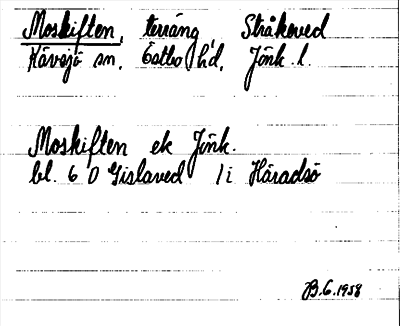 Moskiften, terräng, Stråkeved
Kävsjö sn. Östbo hd. Jönk. l.
Moskiften ek Jönk.
bl. 6 O Gislaved 1 i Häradsö
B.G. 1958